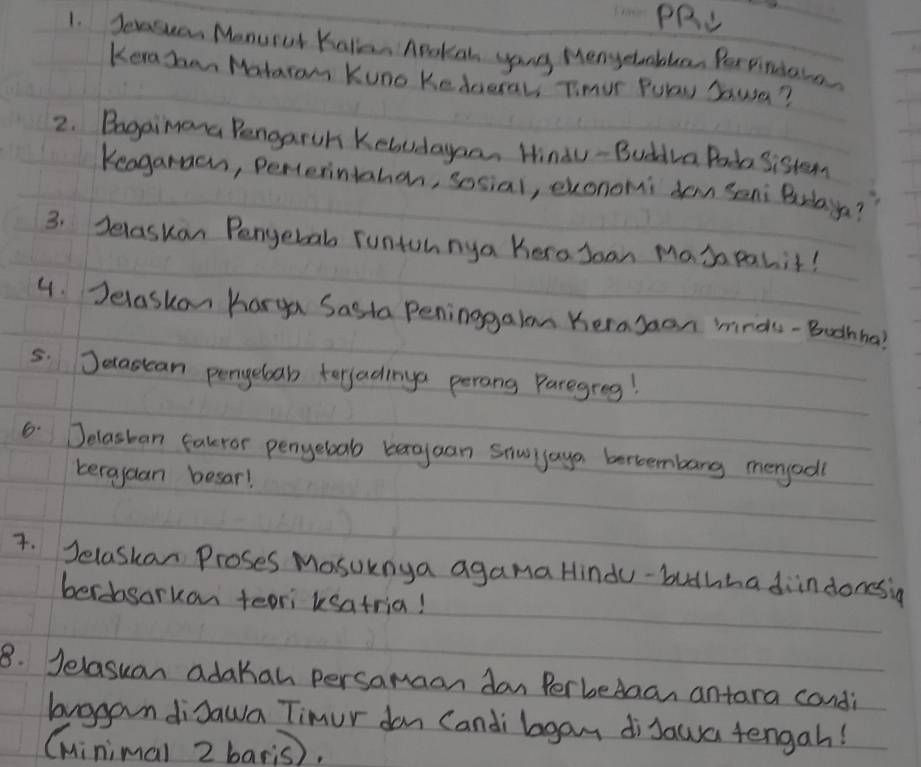 PR↓
1. Jelaskan Menurut Kalian Apakah yang Menyebabkan Perpindahan
Kerajaan Mataram Kuno Kedaerah Timur Pulau Jawa?
2. Bagaimana Pengaruh Kebudayaan Hindu-Buddha Pada Sistem
Keagamaan, Pemerintahan, Sosial, ekonomi dan Seni Budaya?
3. Jelaskan Penyebab runtuhnya Kerajaan Majapahit!
4. Jelaskan Karya Sasta Peninggalan Kerajaan Hindu-Budhha!
5. Jelaskan penyebab terjadinya perang Paregreg!
6. Jelaskan faktor penyebab kerajaan Sriwijaya berkembang menjadi
kerajaan besar!
7. Jelaskan Proses Masuknya agama Hindu-budhha diindonesia
berdasarkan teori ksatria!
8. Jelaskan adakah Persamaan dan Perbedaan antara candi
langgam diJawa Timur dan Candi lagam diJawa tengah!
(Minimal 2 baris).